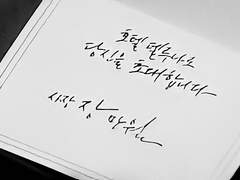 호텔 델루나로
당신을 초대합니다
사장 장만월